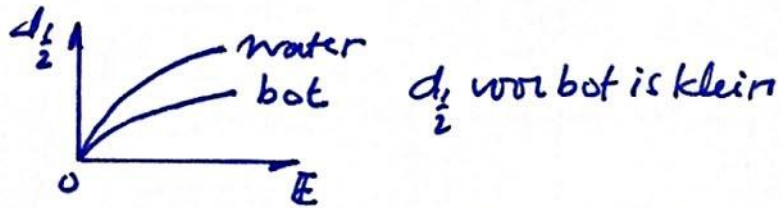 d½
water
bot
d½ voor bot is klein
0
E